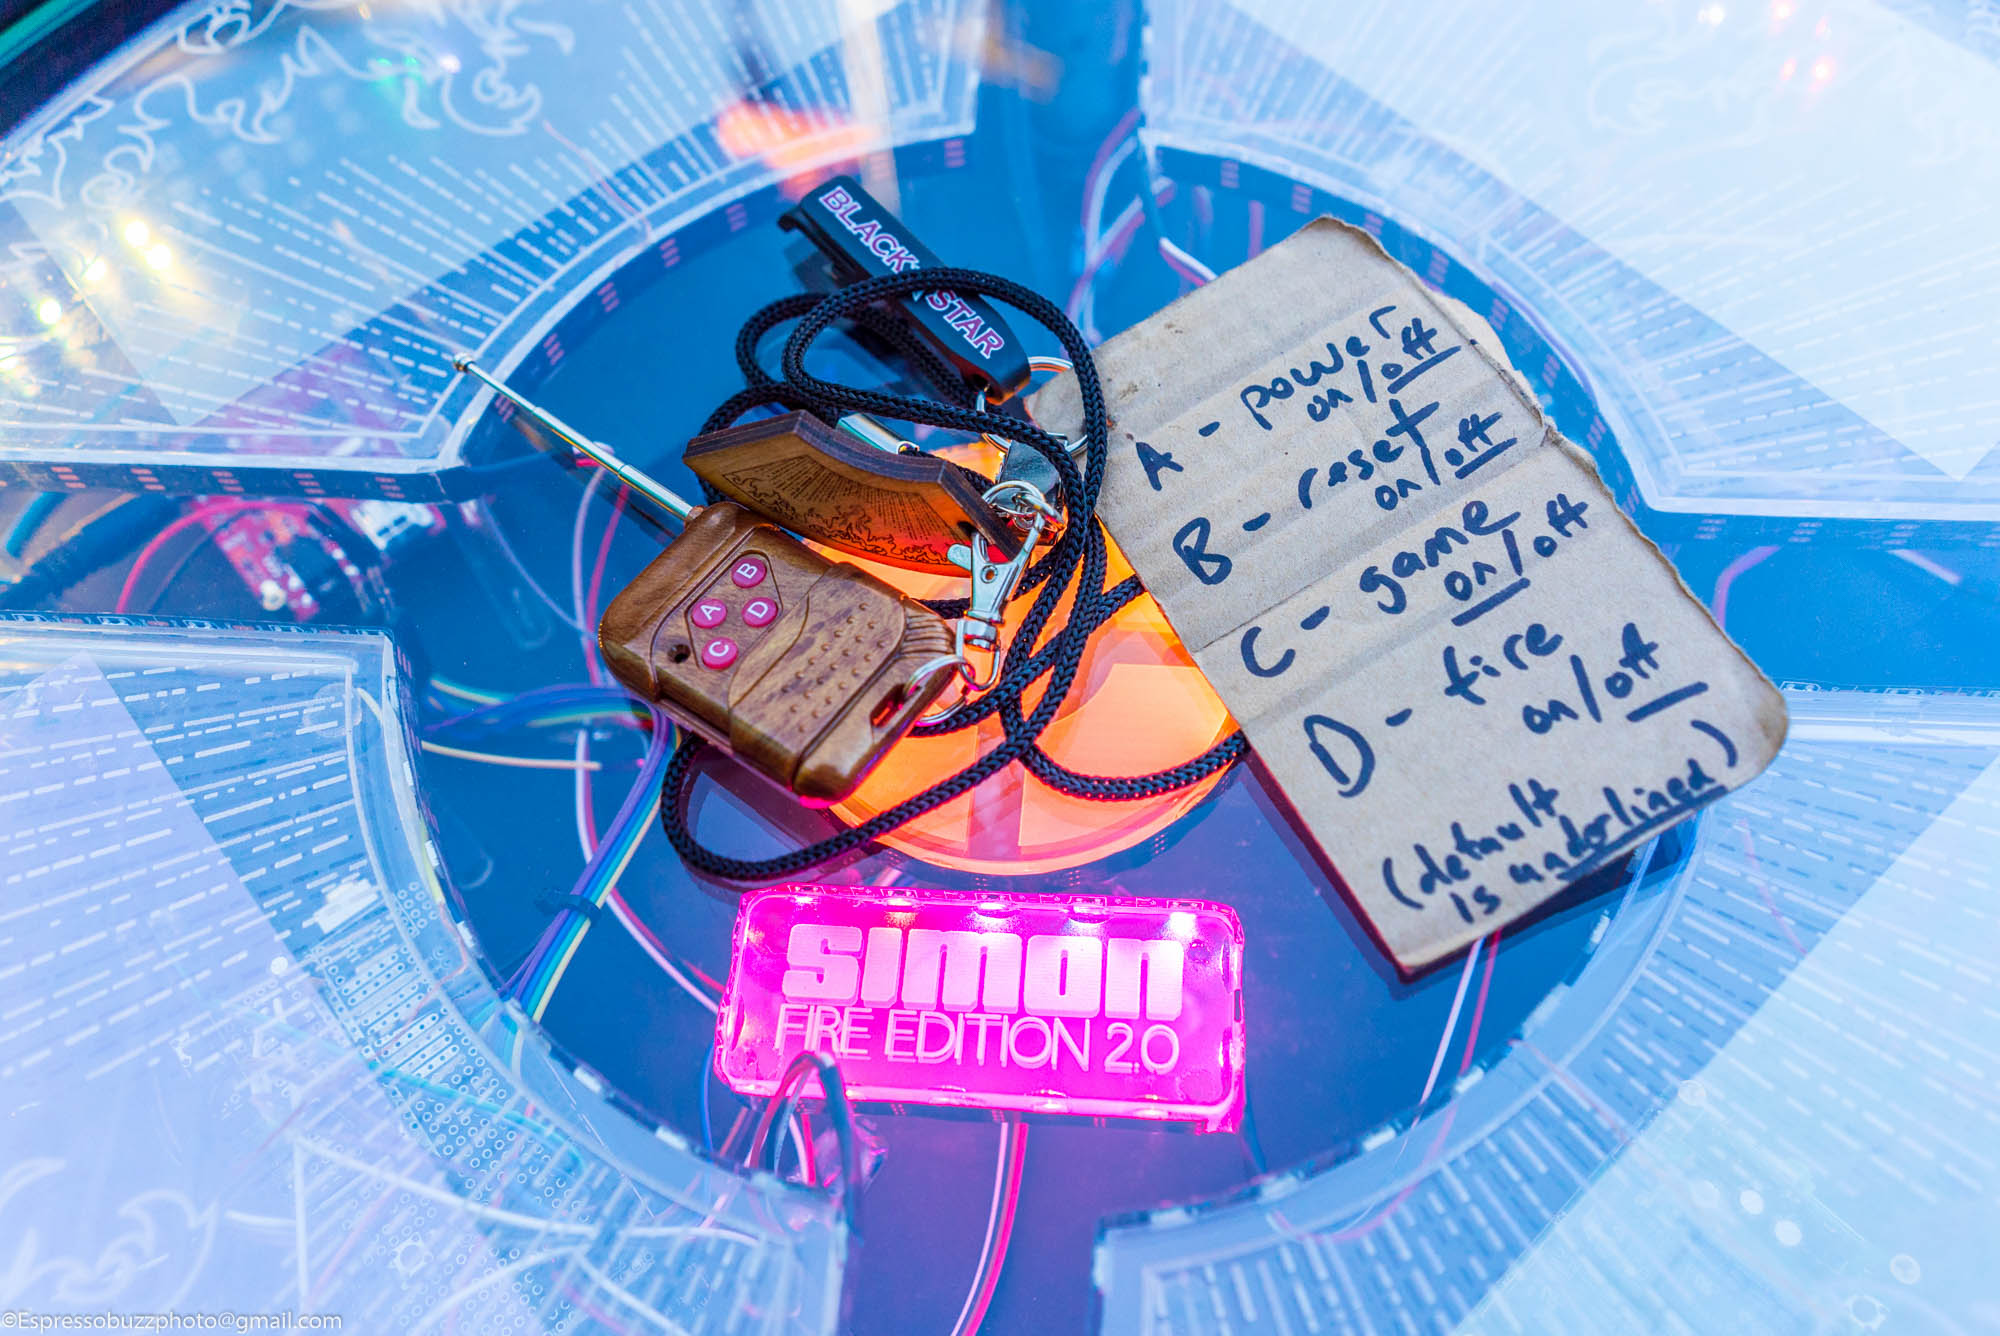 BLACK STAR
A - power
on/off
B - reset
on/off
C - game
on/off
D - fire
on/off
(default
is underlined)
B
A
D
C
simon
FIRE EDITION 2.0
©Espressobuzzphoto@gmail.com